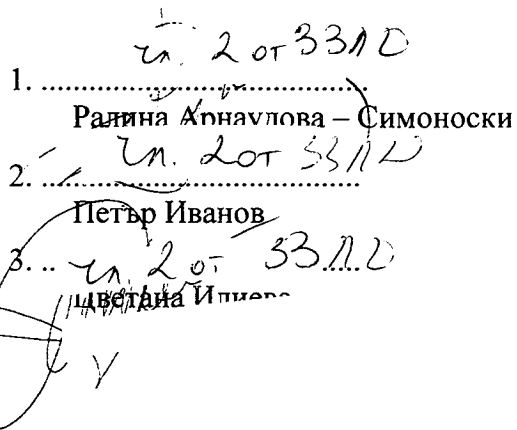 чл. 2 от ЗЗЛД
1. ....................................................
Ралина Арнаудова – Симоноски
чл. 2 от ЗЗЛД
2. ....................................................
Петър Иванов
чл. 2 от ЗЗЛД
3. .. .....
Цветана Илиева